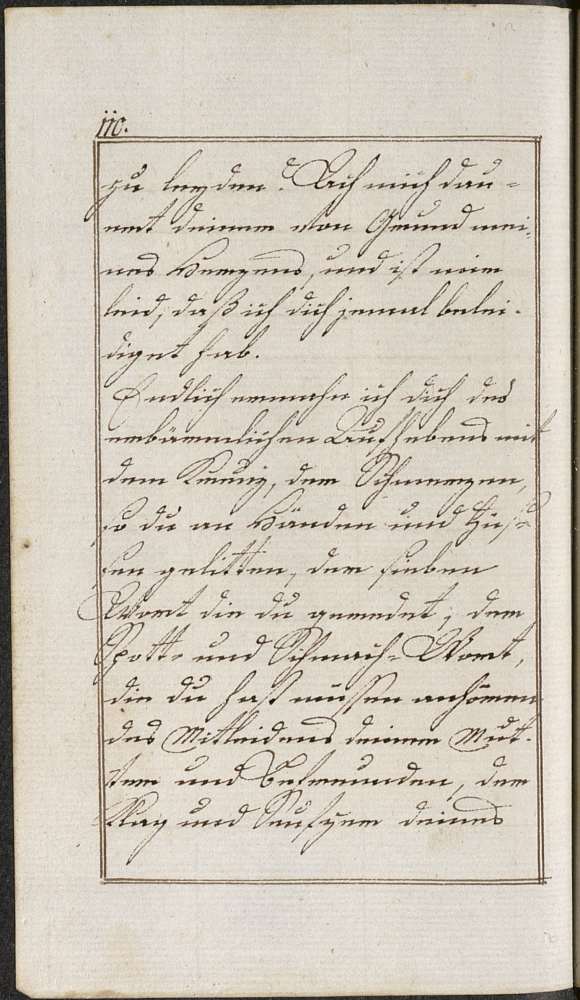 110.
zu leyden? Ach mich dau-
ret deiner von Grund mei-
nes Herzens, und ist mir
leid, daß ich dich jemal belei-
diget hab.
Endlich ermahn ich dich des
erbärmlichen Aufhebens mit
dem Kreuz, der Schmerzen,
so du an Händen und Füs-
sen gelitten, der sieben
Wort die du geredet, der
Spott- und Schmach-Wort,
die du hast müssen anhören
des Mitleidens deiner Mut-
ter und Befreunden, der
Klag und Seufzer deines